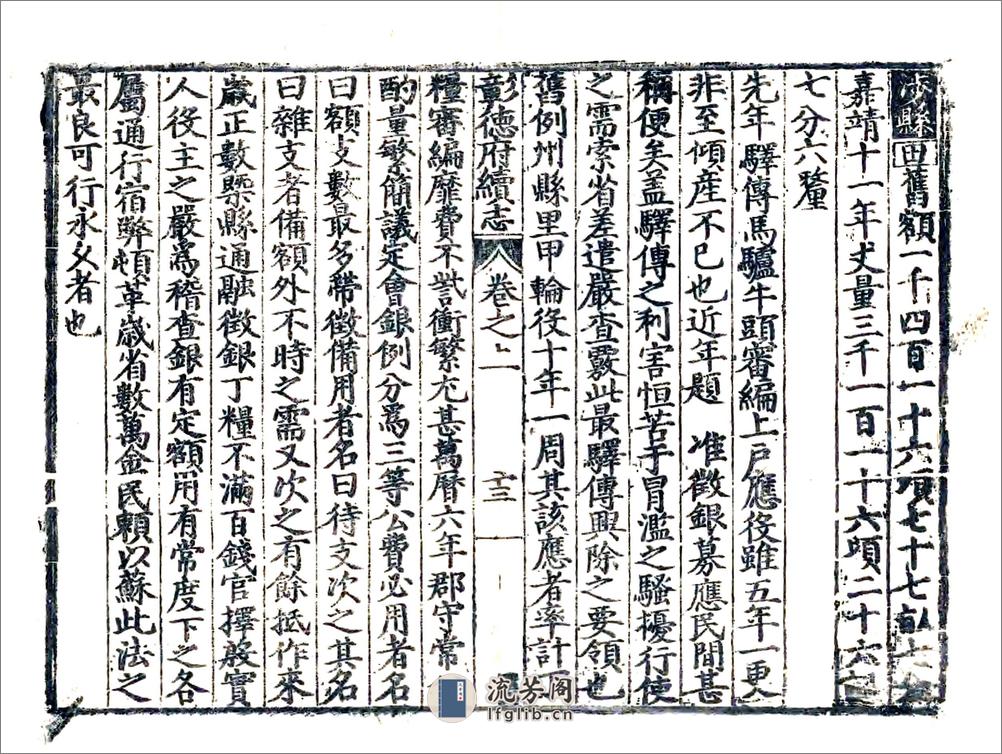 縣田舊額一千四百一十六頃七十七畝七分
嘉靖十一年丈量三千一百一十六頃二十六畝
七分六釐
先年驛傳馬驢牛頭審編上戶應役雖五年一更
非至傾産不已也近年題 准徵銀募應民間甚
稱便矣盖驛傳之利害恒苦于冒濫之騷擾行使
之需索省差遣嚴查覈此最驛傳興除之要領也
舊例州縣里甲輪役十年一周其該應者率計
彰德府續志 卷之上 十三
糧審編靡費不訾衝繁尤甚萬曆六年郡守常
酌量繁簡議定會銀例分爲三等公費必用者名
曰額支數最多帶徵備用者名曰待支次之其名
曰雜支者備額外不時之需又次之有餘抵作來
歲正數槩縣通融徵銀丁糧不滿百錢官擇殷實
人役主之嚴爲稽查銀有定額用有常度下之各
屬通行宿弊頓革歲省數萬金民賴以蘇此法之
最良可行永久者也
流芳阁
lfglib.cn